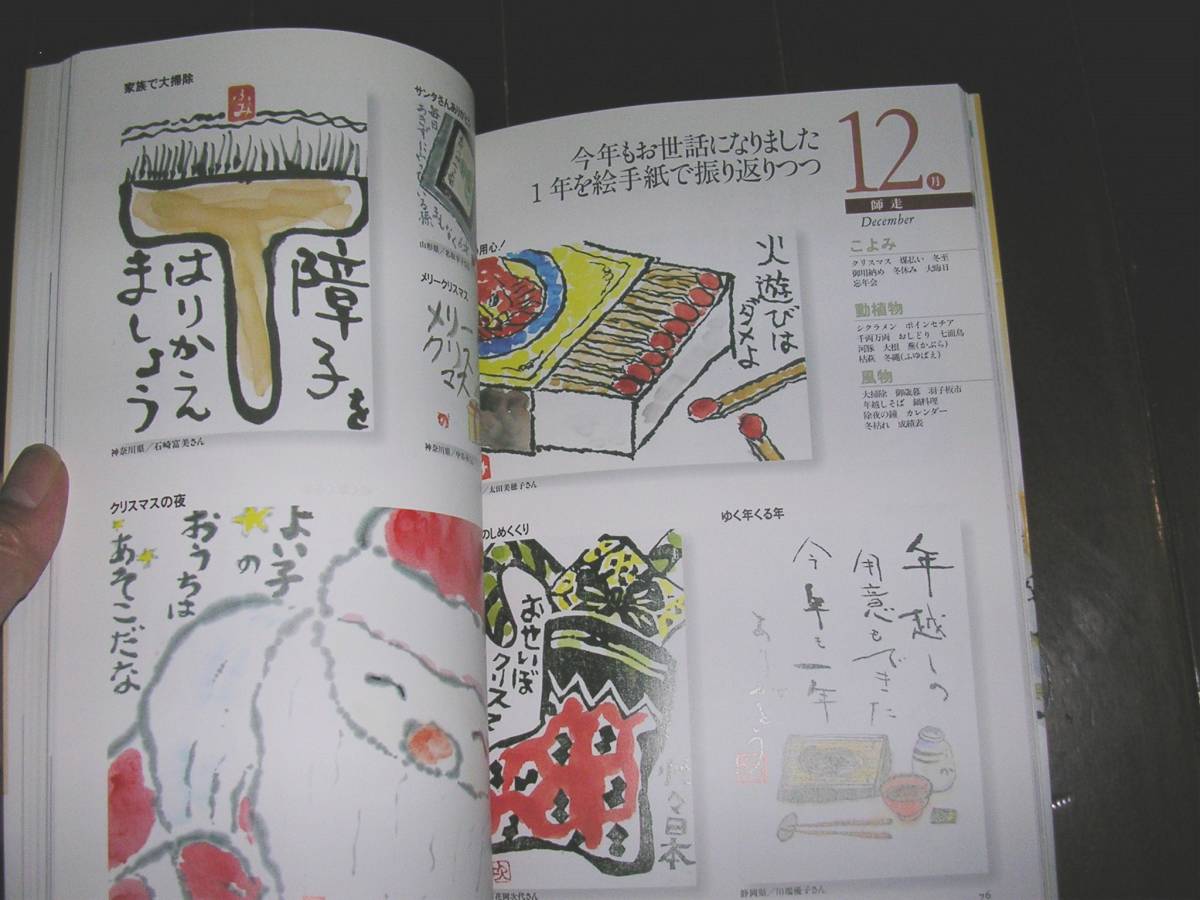 家族で大掃除
ふみ
障子を
はりかえ
ましょう
神奈川県／石崎富美さん
サンタさんありがとう
毎日
メリークリスマス
メリー
クリス
マス
クリスマスの夜
よい子
の
おうちは
あそこだな
12月
師走
December
今年もお世話になりました
1年を絵手紙で振り返りつつ
こよみ
クリスマス 煤払い 冬至
御用納め 冬休み 大晦日
忘年会
動植物
シクラメン ポインセチア
千両万両 おしどり 七面鳥
河豚 大根 蕪(かぶら)
枯萩 冬蠅(ふゆばえ)
風物
大掃除 御歳暮 羽子板市
年越しそば 鍋料理
除夜の鐘 カレンダー
冬枯れ 成績表
用心！
火遊びは
ダメよ
太田美穂子さん
のしめくくり
おせいぼ
クリス
日本
花岡次代さん
ゆく年くる年
年越しの
用意もできた
今年も一年
ありがとう
静岡県／川端優子さん
76